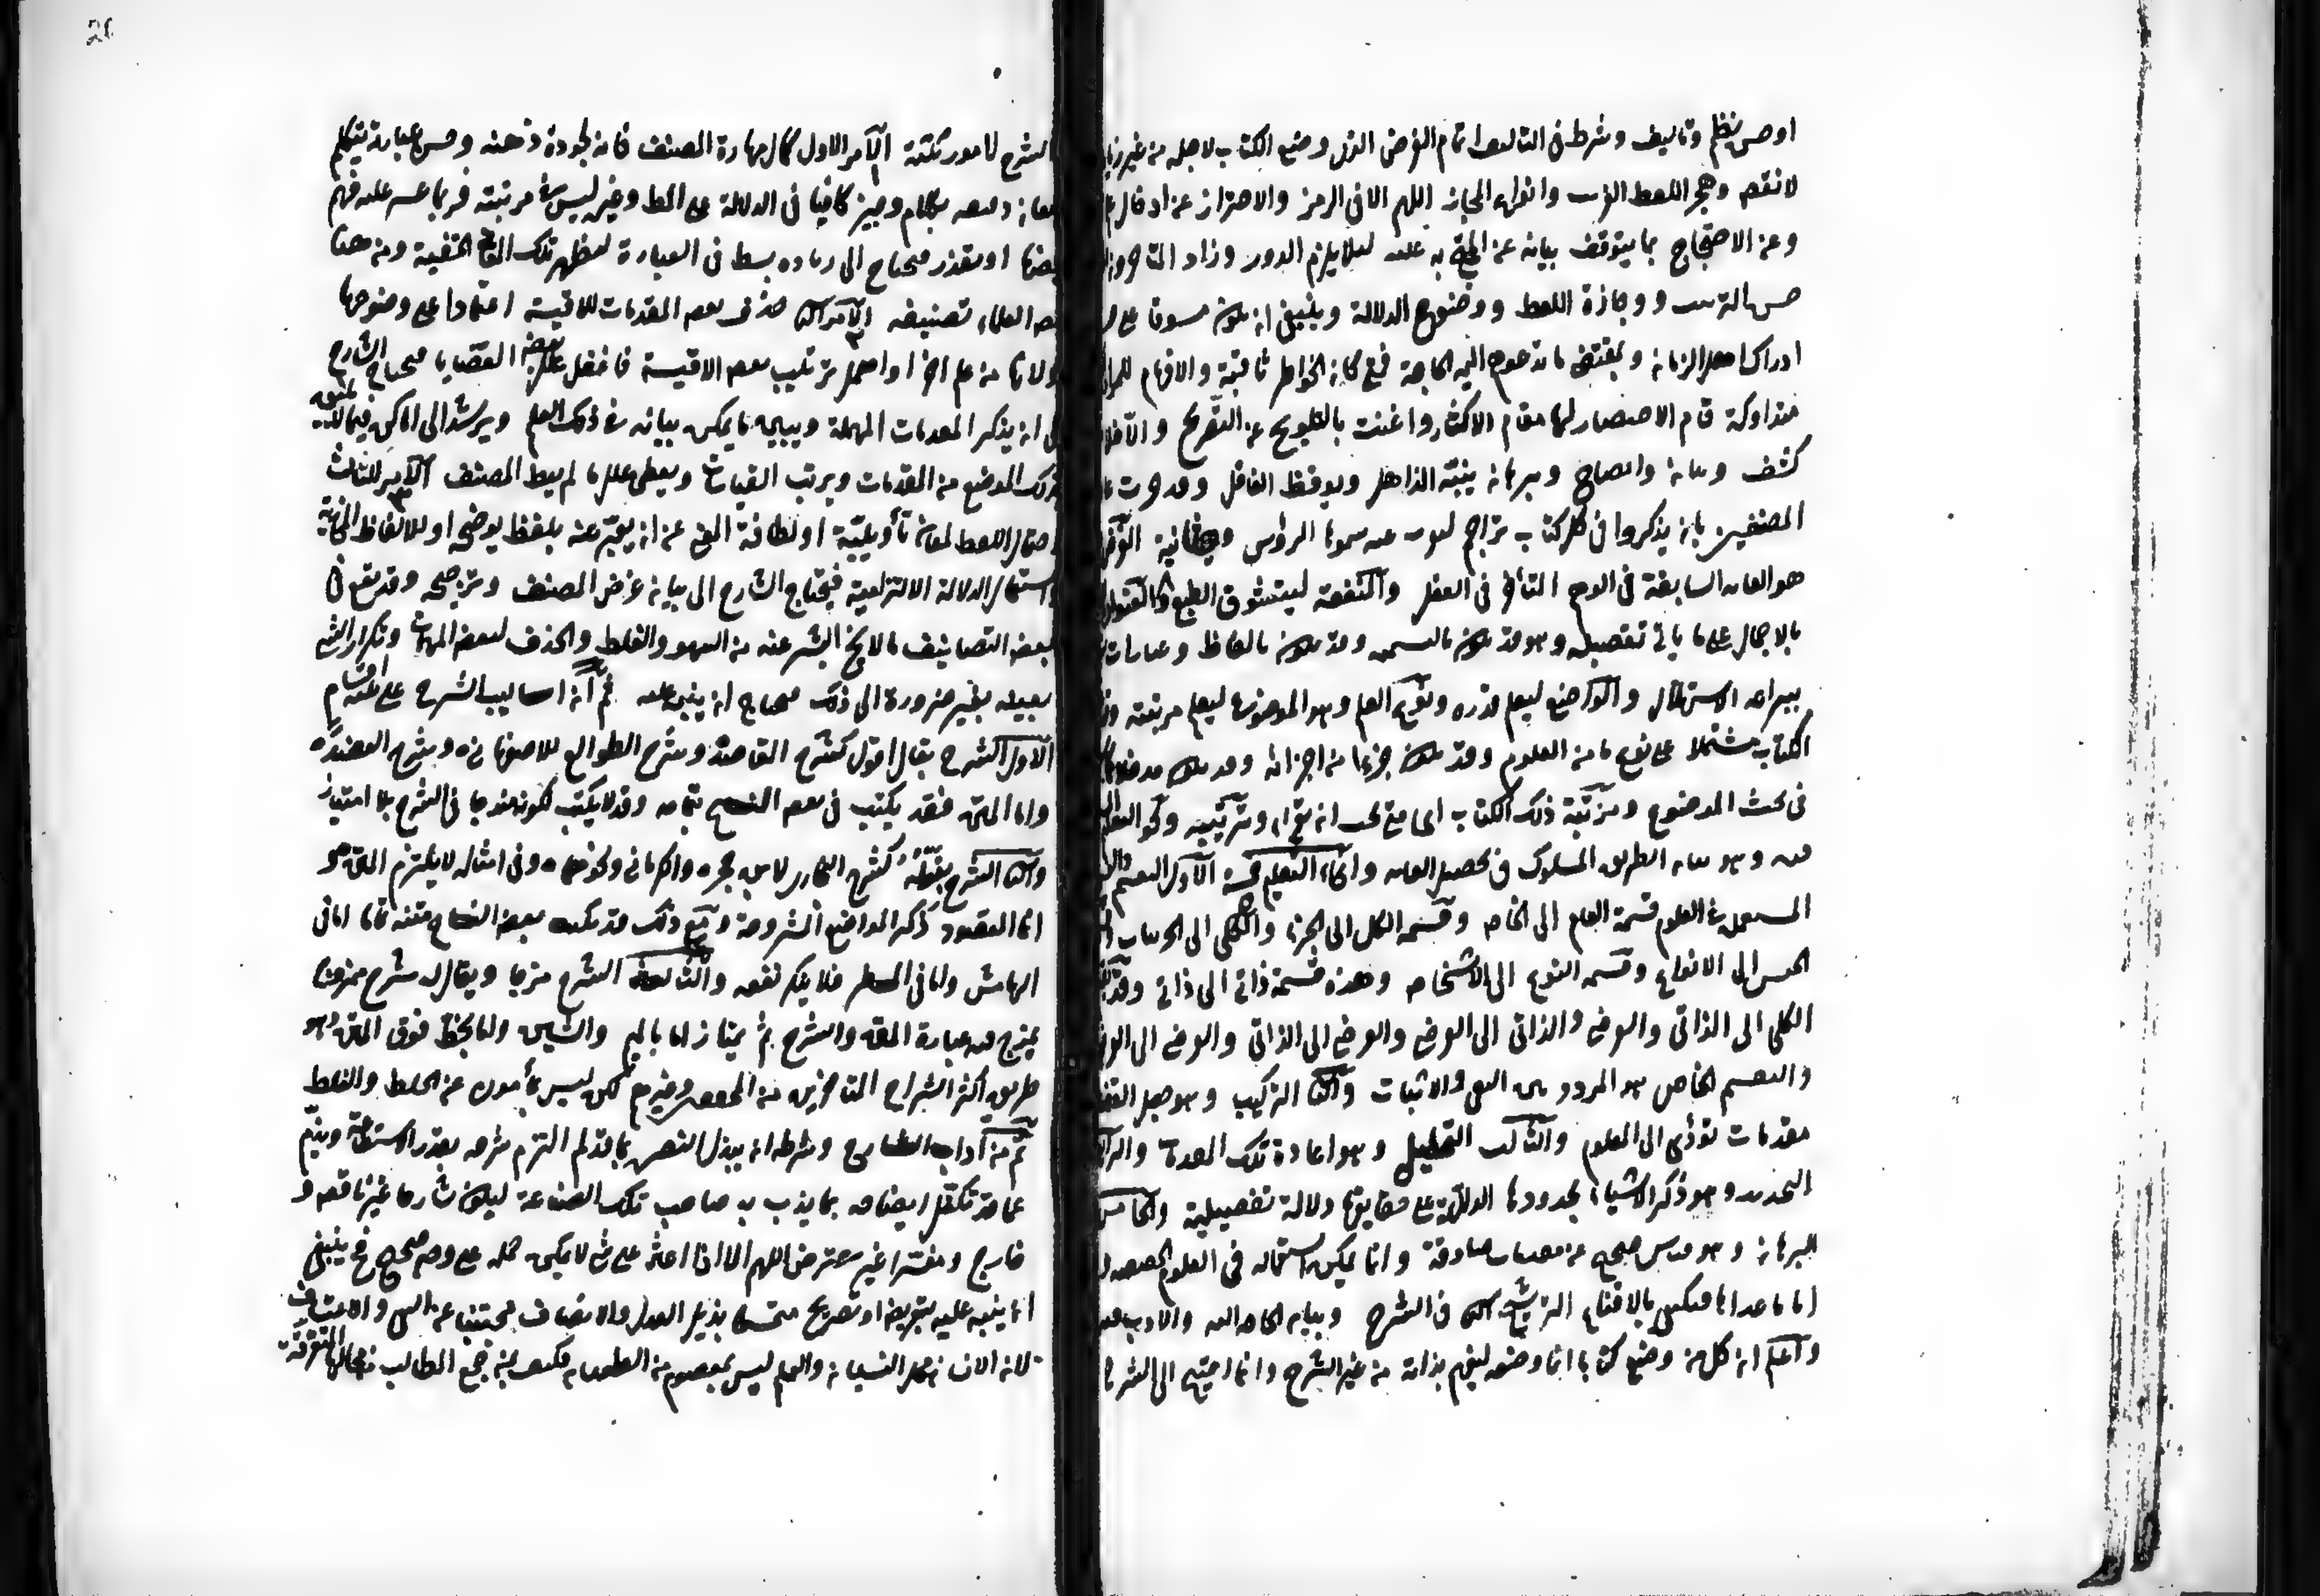 او حسن نظم وتاليف وشرط في التاليف اتمام الغرض الذي وضع الكتاب لاجله من غير زيادة
لا نقص وهجر اللفظ الغريب وانواع المجاز اللهم الا في الرمز والاحتراز عن ادخال علم
وعن الاحتجاج بما يتوقف بيانه عن المحتج به عليه ليلا يلزم الدور وزاد المتاخرون
حسن الترتيب ووجازة اللفظ ووضوح الدلالة وينبغي ان يكون مسوقا على
ادراك اهل الزمان وبمقتضى ما تدعوهم اليه الحاجة فمتى كانت الخواطر ثاقبة والافهام للمراد
متداركة قام الاختصار لها مقام الاكثار واغنت بالتلويح عن التصريح والا فلا
كشف وبيان وايضاح وبرهان ينبه الذاهل ويوقظ الغافل وقد جرت
المصنفين بان يذكروا في كل كتاب تراجم لتعرب عنه سموها الرؤس وهي ثمانية الغرض
هو الغاية السابقة في الوهم المتأخرة في الفعل والمنفعة ليتشوق الطبع والعنوان
بالاجمال على ما ياتي تفصيله وهو قد يكون بالتسمية وقد يكون بالفاظ وعبارات
ببراعة الاستهلال والواضع ليعلم قدره ونوع العلم وهو الموضوع ليعلم مرتبته وقد
الكتاب مشتملا على نوع ما من العلوم وقد يكون جزءا من اجزائه وقد يكون مدخلا
في بحث الموضوع ومرتبة ذلك الكتاب اي متى يجب ان يقراء وترتيبه ونحو التعليم
فيه وهو بيان الطريق المسلوك في تحصيل الغاية وانحاء التعليم خمسة الاول التقسيم
المستعملة في العلوم قسمة العام الى الخاص وقسمة الكل الى الجزء والكلي الى الجزئيات
الجنس الى الانواع وقسمة النوع الى الاشخاص وهذه قسمة ذاتي الى ذاتي وقد
الكلي الى الذاتي والعرضي والذاتي الى العرضي والعرضي الى الذاتي والعرضي الى العرضي
والتقسيم الخاص هو المردد بين النفي والاثبات والثاني التركيب وهو جعل القضايا
مقدمات تؤدي الى المعلوم والثالث التحليل وهو اعادة تلك المقدمات
التحديد وهو ذكر الاشياء بحدودها الدالة على حقايقها دلالة تفصيلية والخامس
البرهان وهو قياس صحيح عن مقدمات صادقة وانما يمكن استعماله في العلوم الحقيقية
اما ما عداها فيكتفى بالاقناع الترشيح الثاني في الشرح وبيان الحاجة اليه والادب فيه
واعلم ان كل من وضع كتابا انما وضعه ليفهم بذاته من غير الشرح وانما احتيج الى الشرح
الشرح لامور ثلثة الامر الاول كمال مهارة المصنف فانه لجودة ذهنه وحسن عبارته يتكلم
معان دقيقة بكلام وجيز كافيا في الدلالة على المط وغيره ليس في مرتبته فربما عسر عليه فهم
بعضها او تعذر فيحتاج الى زيادة بسط في العبارة لتظهر تلك المعاني الخفية ومن هنا
شرح بعض العلماء تصنيفه الامر الثاني حذف بعض المقدمات للاقيسة اعتمادا على وضوحها
ولانها من علم اخر او اهمل ترتيب بعض الاقيسة فاغفل علل بعض القضايا فيحتاج الشارح
الى ان يذكر المقدمات المهملة ويبين ما يمكن بيانه في ذلك العلم ويرشد الى اماكن فيما لا يليق
بذلك الموضع من المقدمات ويرتب القياسات ويعطي علل ما لم يعط المصنف الامر الثالث
احتمال اللفظ لمعان تأويلية او لطافة المعنى عن ان يعبر عنه بلفظ يوضحه او للالفاظ المجازية
واستعمال الدلالة الالتزامية فيحتاج الشارح الى بيان غرض المصنف وترجيحه وقد يقع في
بعض التصانيف ما لا يخلو البشر عنه من السهو والغلط والحذف لبعض المهمات وتكرار الشيء
بعينه بغير ضرورة الى ذلك فيحتاج ان ينبه عليه ثم ان اساليب الشرح على ثلثة اقسام
الاول الشرح بقال اقول كشرح المقاصد وشرح الطوالع للاصفهاني وشرح العضد
واما المتن فقد يكتب في بعض النسخ بتمامه وقد لا يكتب لكونه مندرجا في الشرح بلا امتياز
والثاني الشرح بقوله كشرح البخاري لابن حجر والكرماني ونحوهما وفي امثاله لا يلتزم المتن
انما المقصود ذكر المواضع المشروحة ومع ذلك قد يكتب بعض النساخ متنه تماما اما في
الهامش واما في المسطر فلا ينكر نفعه والثالث الشرح مزجا ويقال له شرح ممزوج
يمزج فيه عبارة المتن والشرح ثم يمتاز اما بالميم والشين واما بخط فوق المتن وهو
طريق اكثر الشراح المتاخرين من المحققين وغيرهم لكن ليس بمأمون عن الخلط والغلط
ثم من آداب الشارح وشرطه ان يبذل النصرة بما قد لم التزم شرحه بقدر الاستطاعة ويذب
عما قد تكفل ايضاحه بما يذب به صاحب تلك الصناعة ليكون شارحا غير ناقض و
جارح ومفسرا غير معترض اللهم الا اذا اعثر على شيء لا يمكن حمله على وجه صحيح فح ينبغي
ان ينبه عليه بتعريض او تصريح متمسكا بذيل العدل والانصاف مجتنبا عن البغي والاعتساف
لان الانسان محل النسيان والقلم ليس بمعصوم من الطغيان فكيف بمن جمع المطالب من محالها المتفرقة